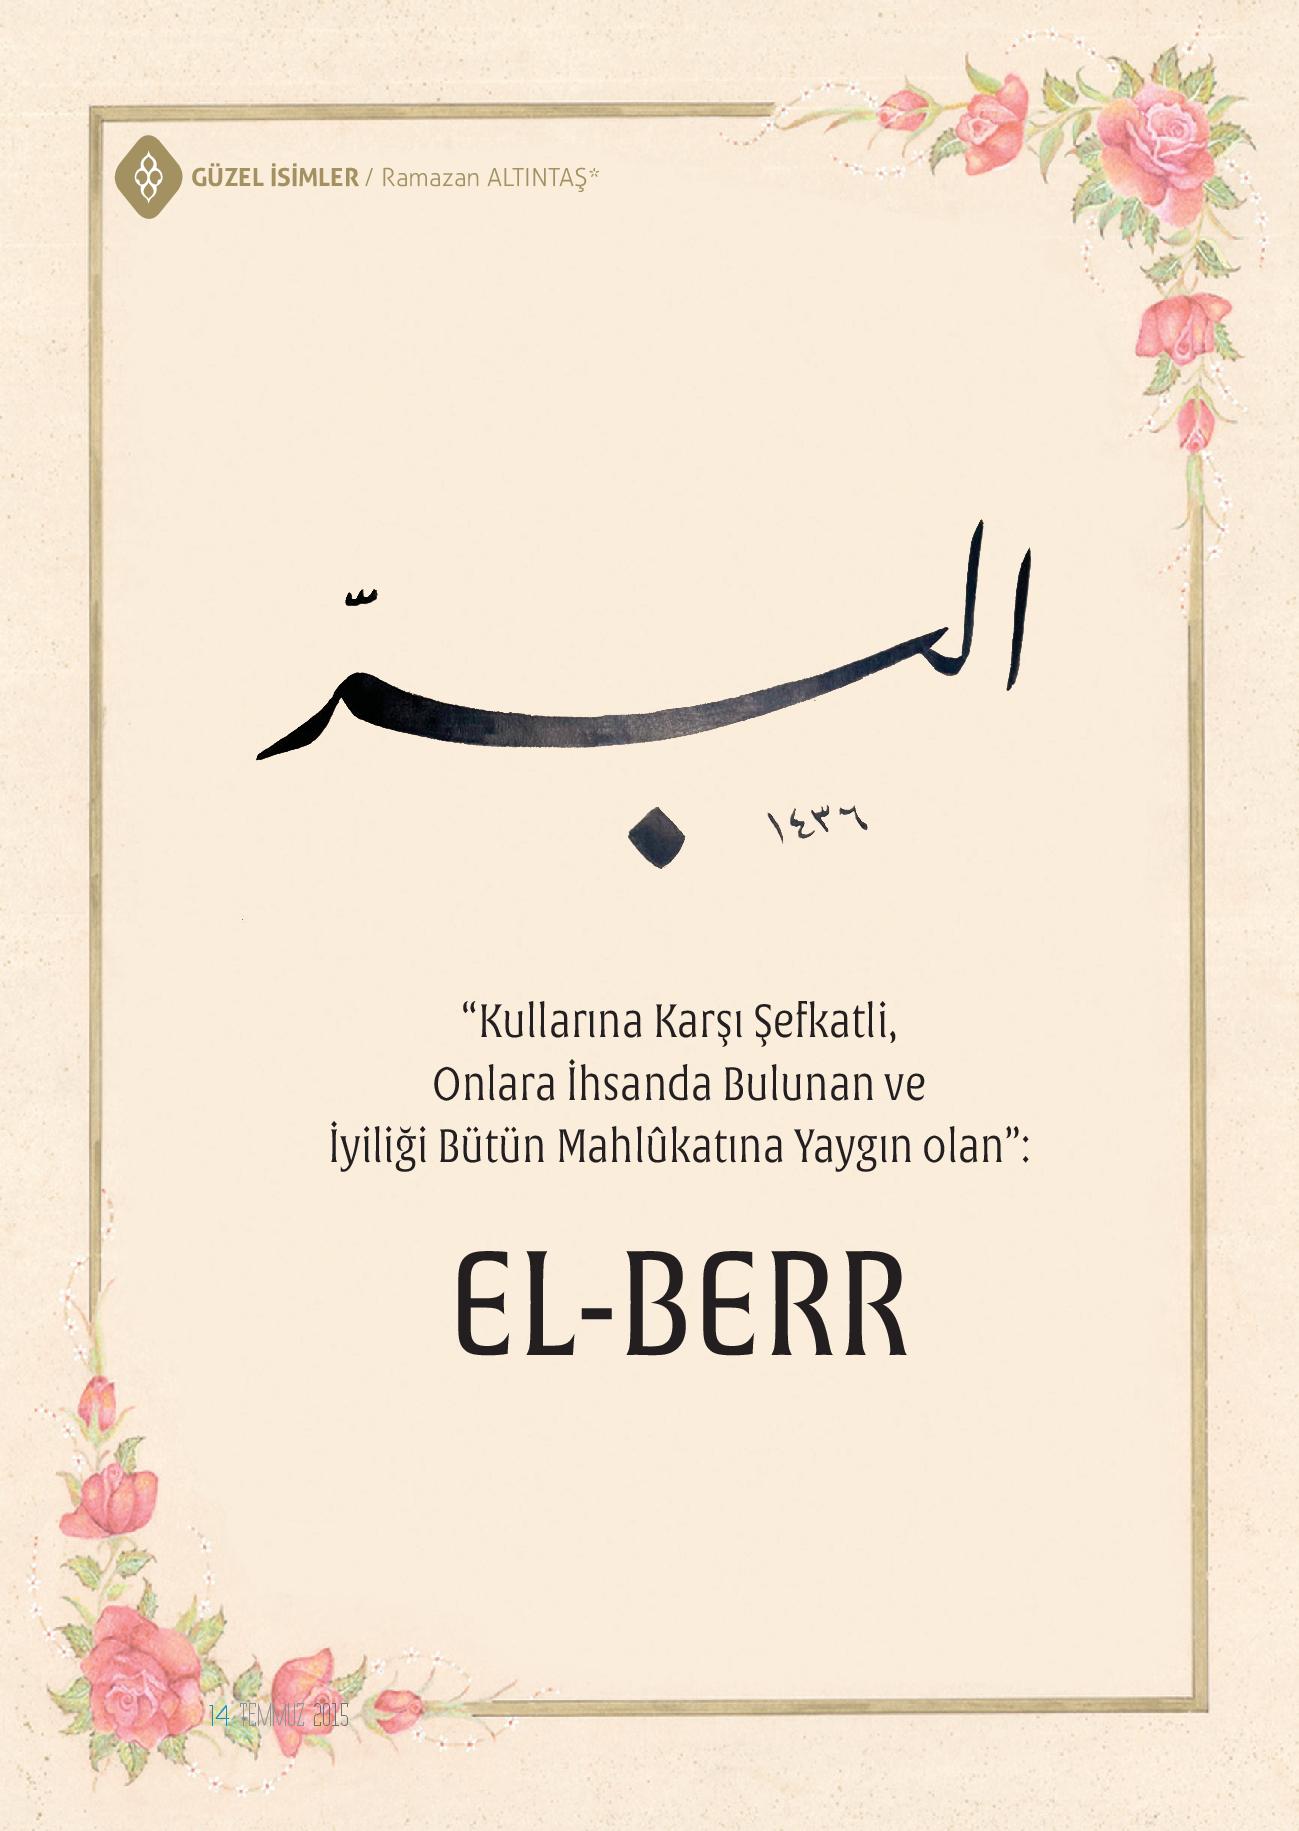 GÜZEL İSİMLER / Ramazan ALTINTAŞ*
البرّ
١٤٣٦
“Kullarına Karşı Şefkatli,
Onlara İhsanda Bulunan ve
İyiliği Bütün Mahlûkatına Yaygın olan”:
EL-BERR
14 TEMMUZ 2015